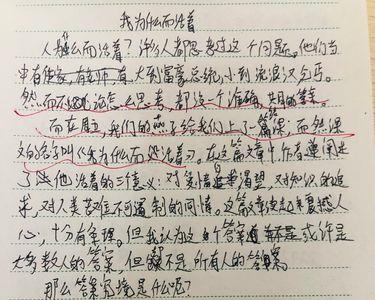 我为什么而活着
人为什么而活着？许多人都思考过这个问题。他们当
中有作家，有教师，有大到富豪总统，小到流浪汉乞丐。
然而不论怎么思考，都没一个准确，共用的答案。
而在周五，我们的老师给我们上了一篇课，而然课
文的名字叫《我为什么而活着》。在这篇文章中，作者阐述
了他活着的三个意义：对爱情的渴望，对知识的追
求，对人类苦难不可遏制的同情。这篇文章读起来震撼人
心，十分有条理。但我认为这个答案或许是
大多数人的答案，但不是所有人的答案。
那么答案究竟是什么呢？